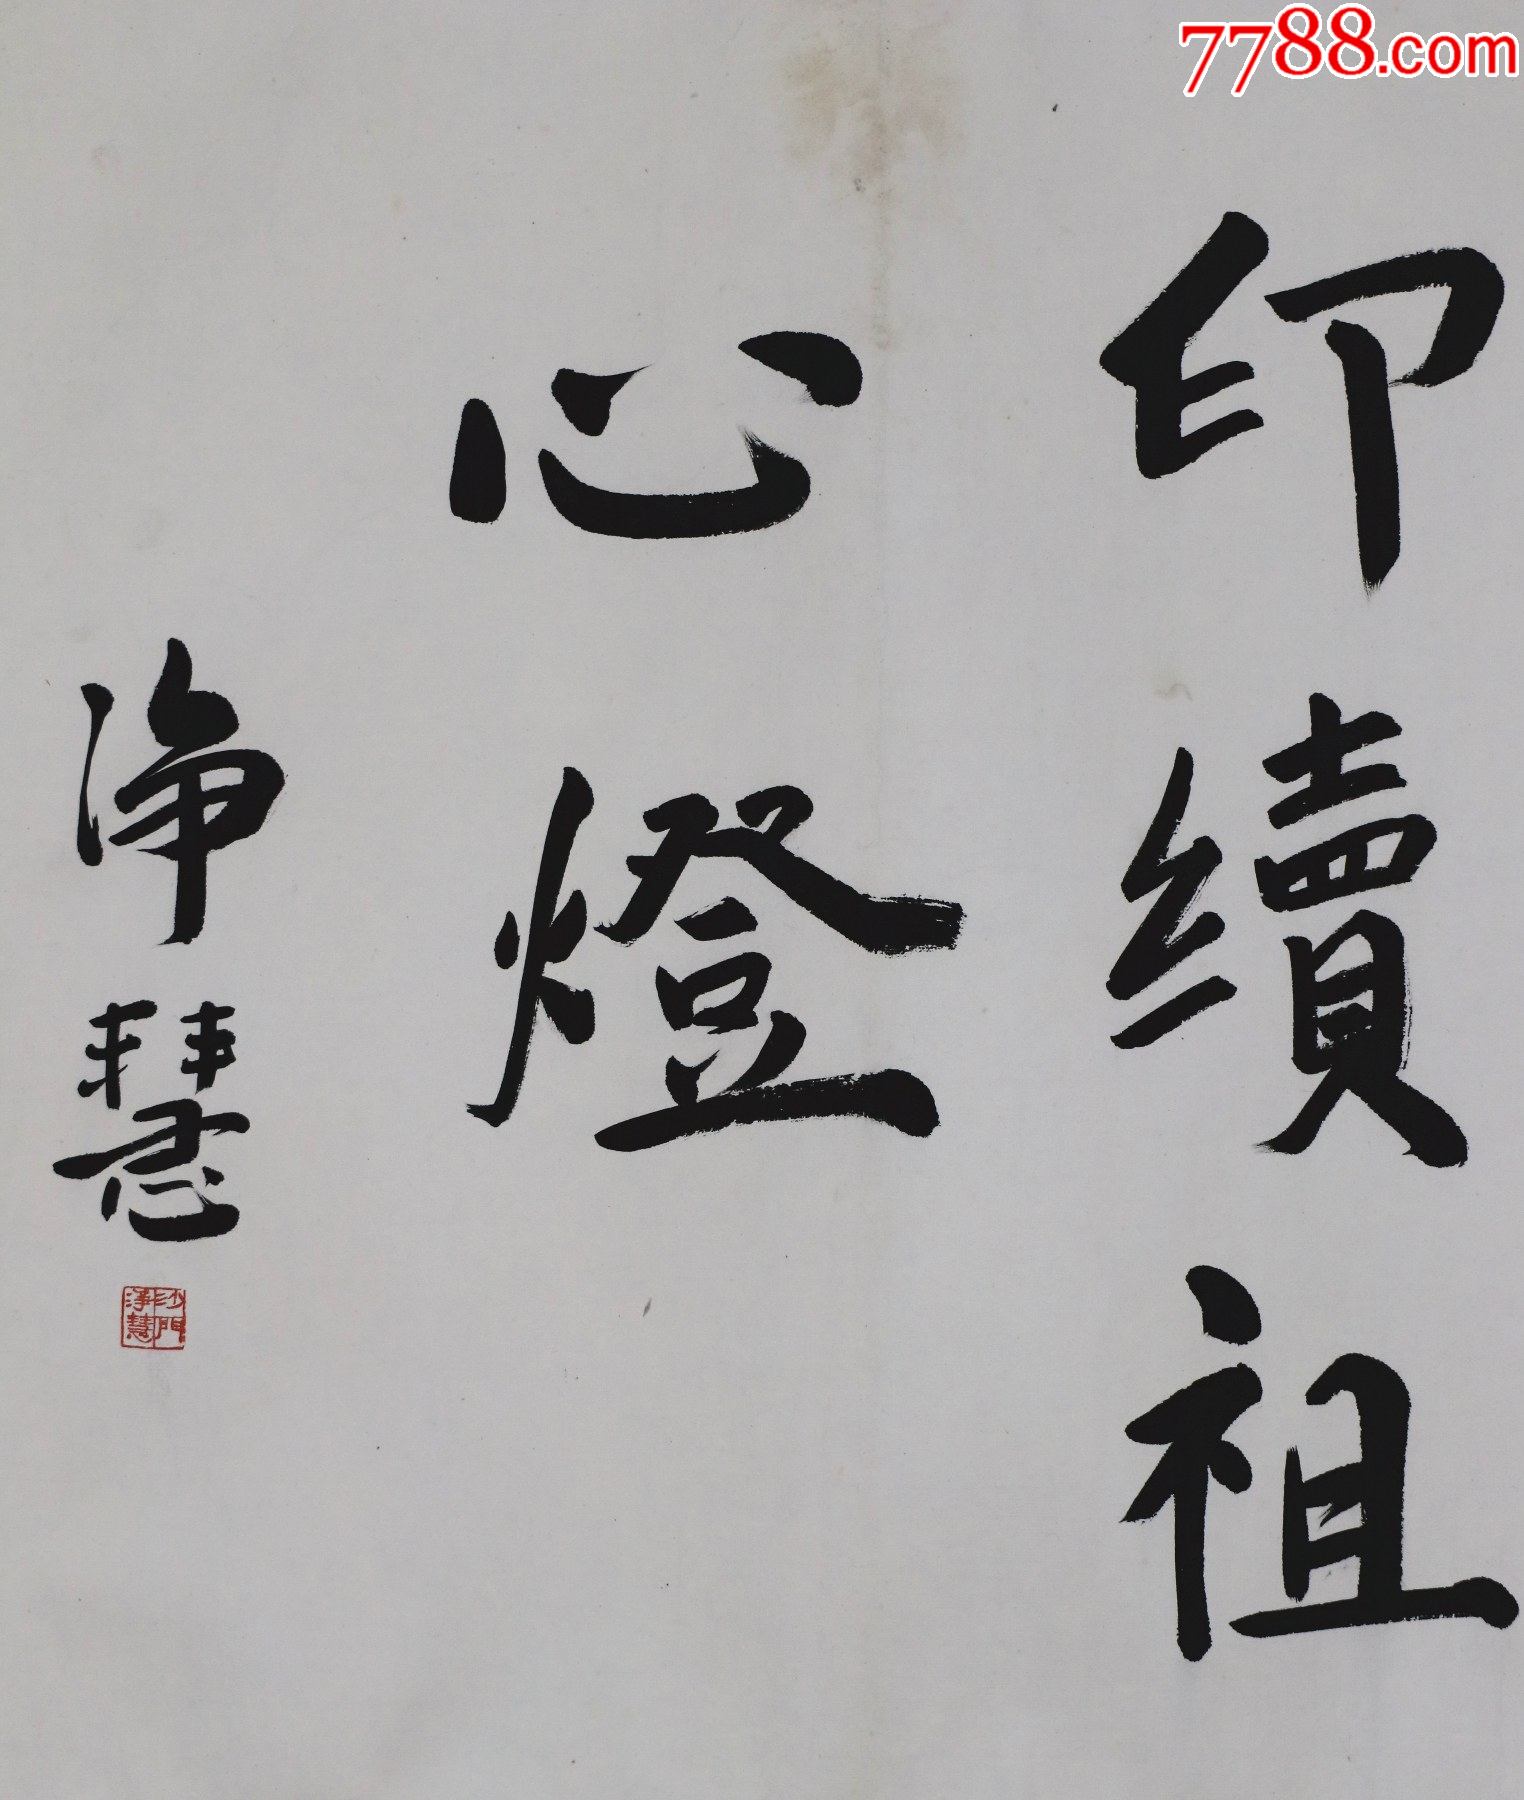 7788.com
印續祖
心燈
淨慧
沙門
淨慧